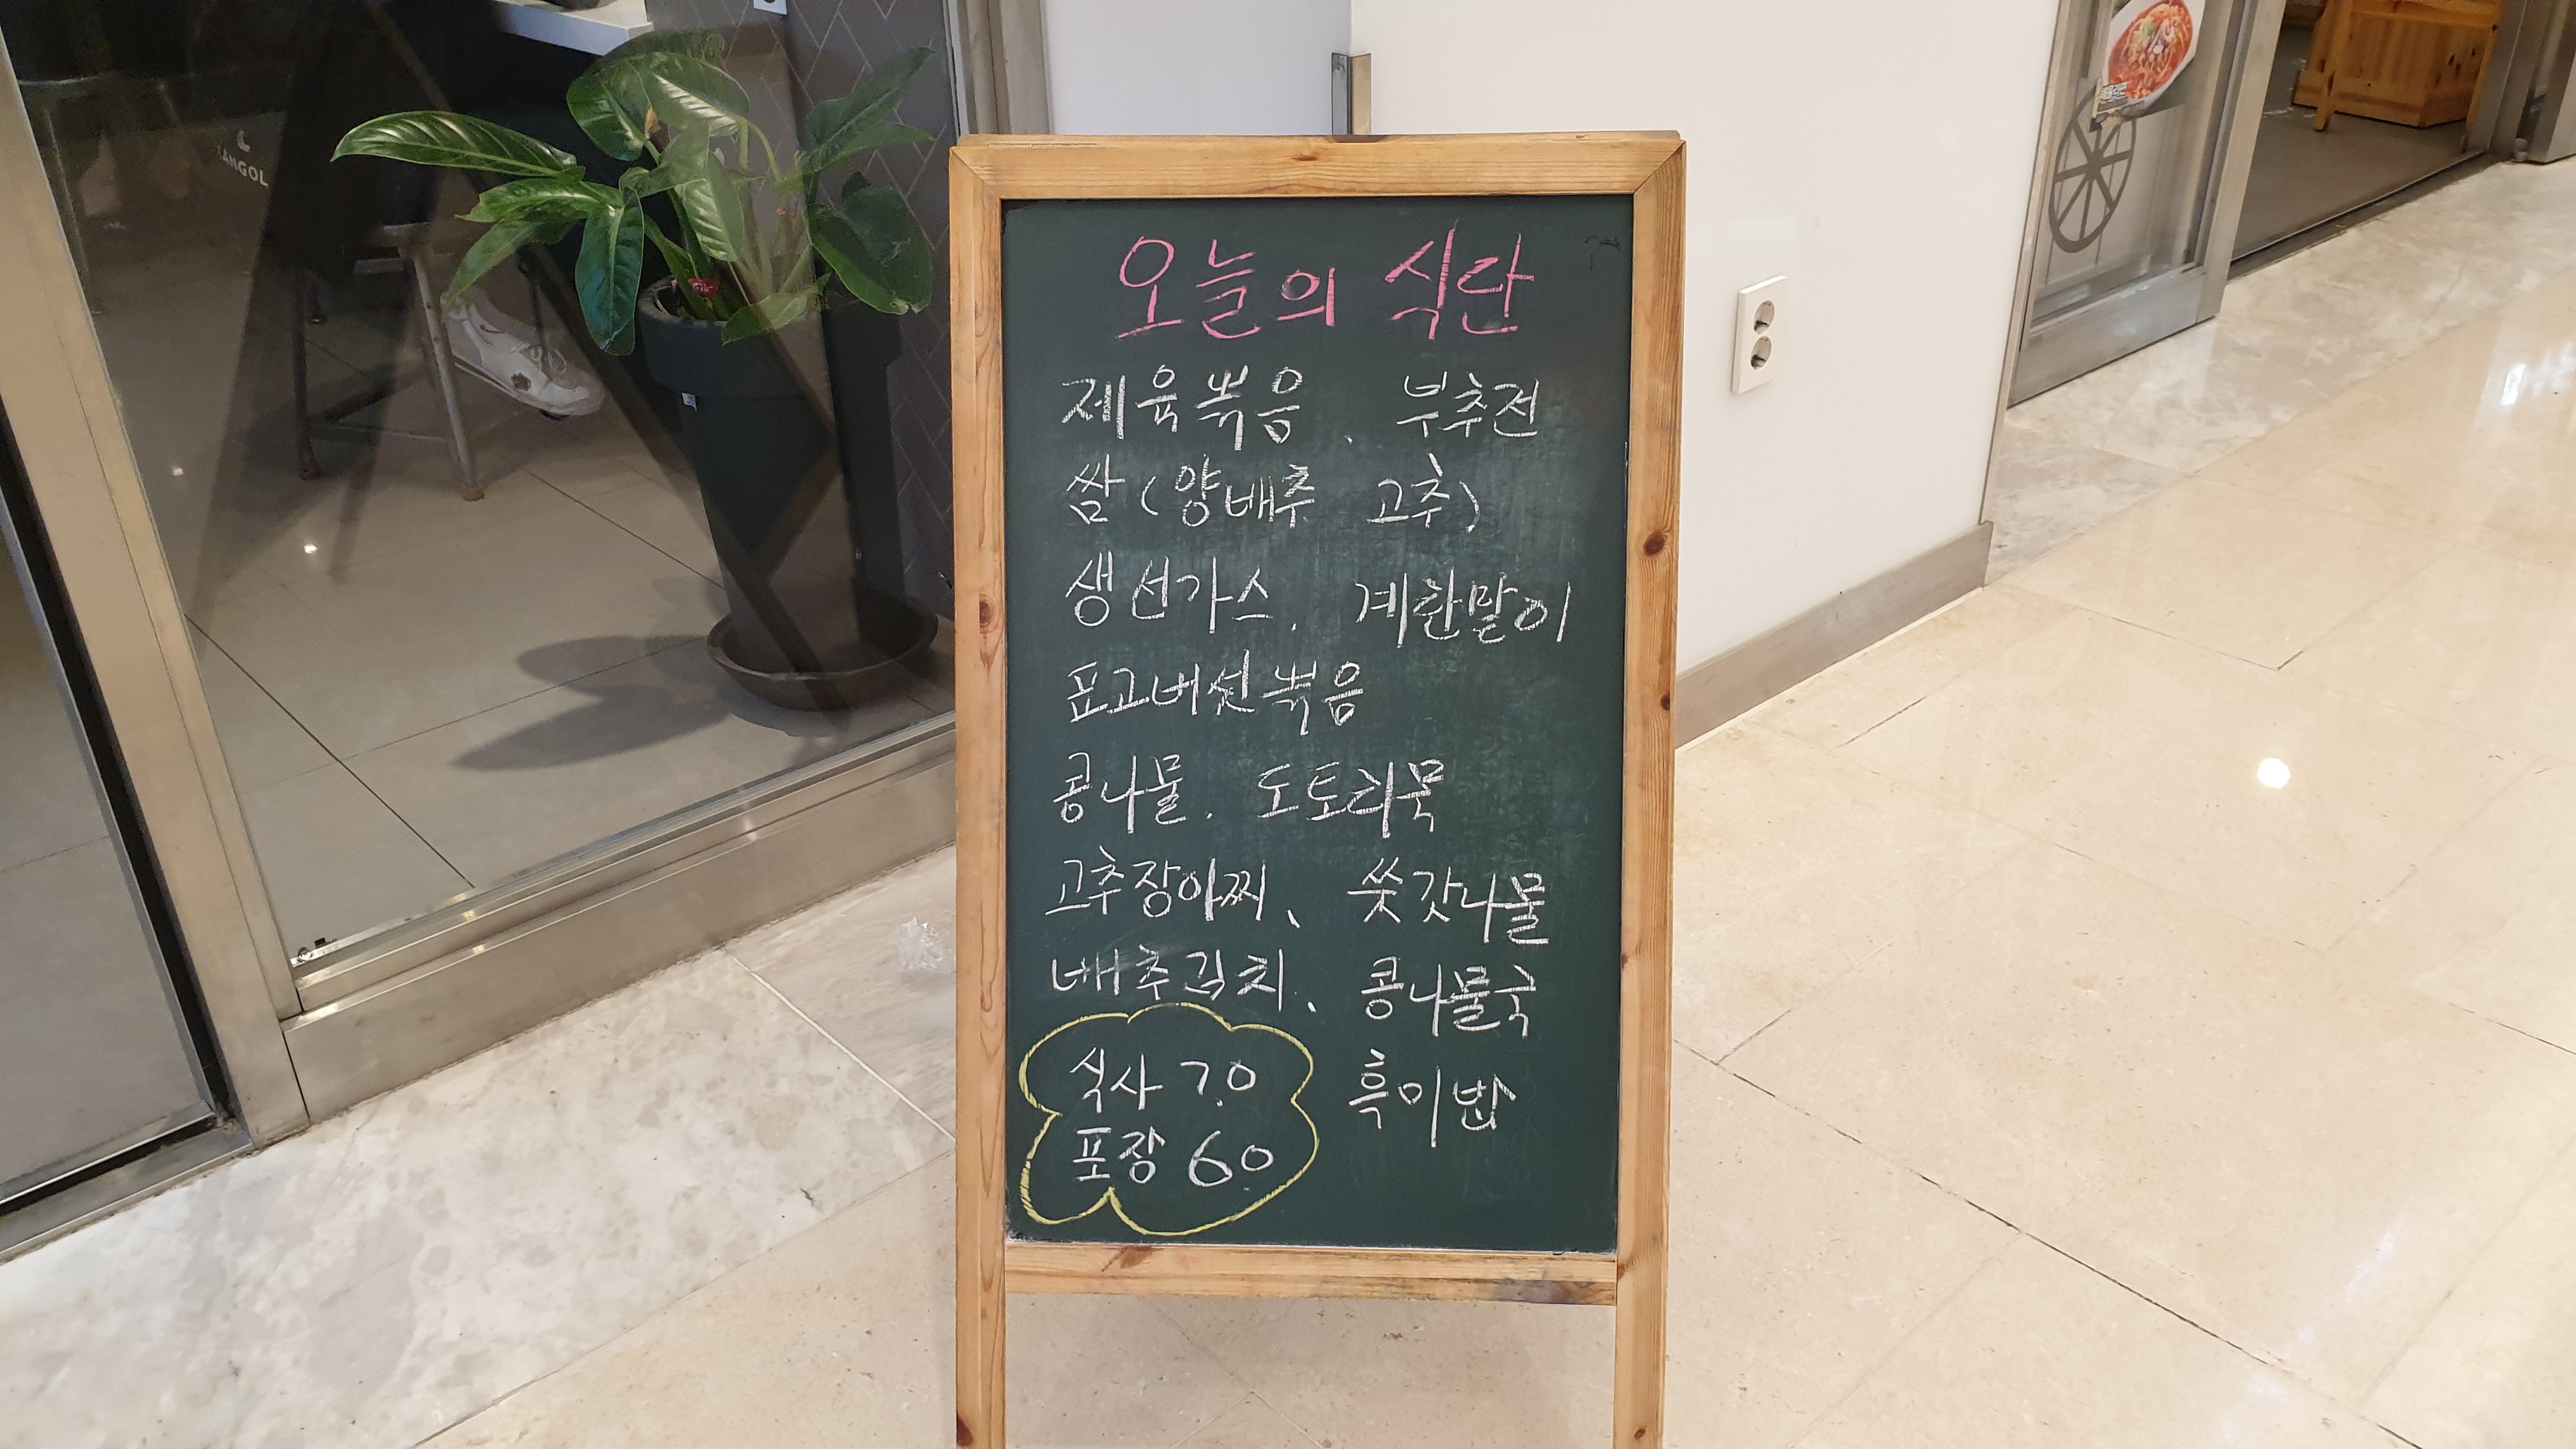 오늘의 식단
제육볶음、 부추전
쌈(양배추 고추)
생선가스. 계란말이
표고버섯볶음
콩나물. 도토리묵
고추장아찌、 쑥갓나물
배추김치、 콩나물국
식사 7.0 흑미밥
포장 6.0